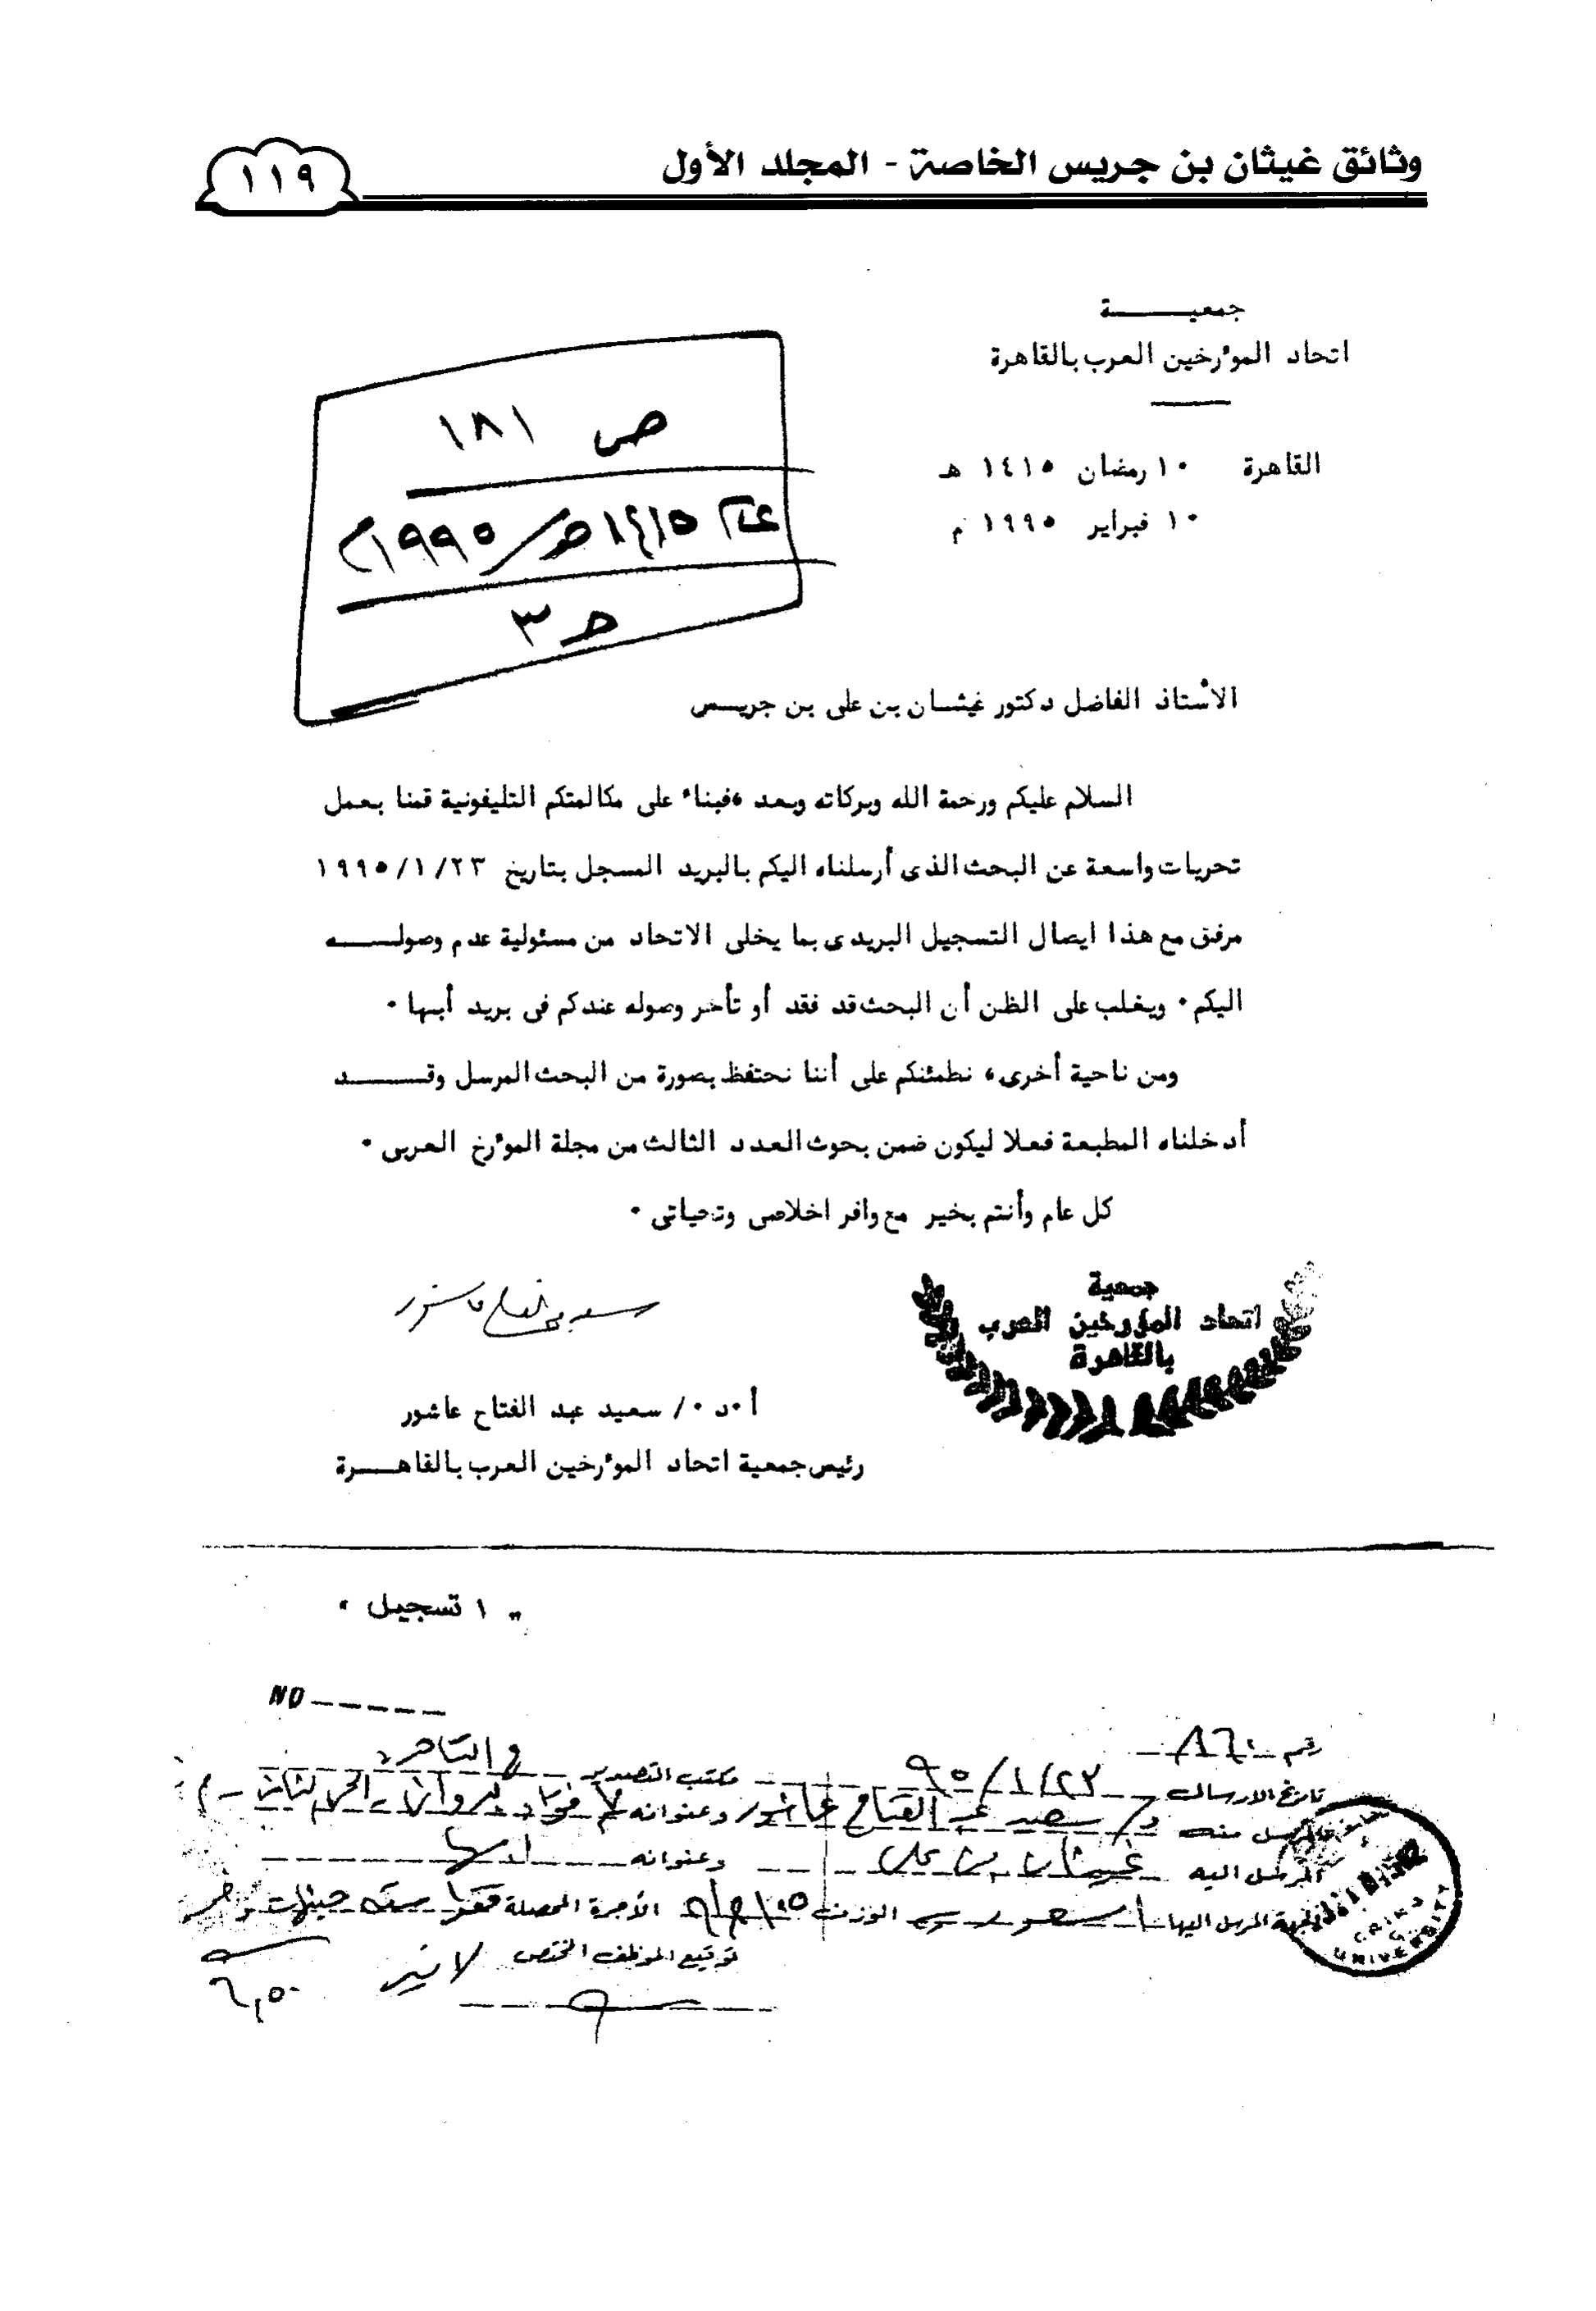 وثائق غيثان بن جريس الخاصة - المجلد الأول
١١٩
جمعيـــــة
اتحاد المؤرخين العرب بالقاهرة
القاهرة ١٠ رمضان ١٤١٥ هـ
١٠ فبراير ١٩٩٥ م
ص ١٨١
عام ١٤١٥هـ/١٩٩٥م
حـ ٣
الأستاذ الفاضل دكتور غيثـان بن على بن جريـس
السلام عليكم ورحمة الله وبركاته وبعد ،فبناء على مكالمتكم التليفونية قمنا بعمل
تحريات واسعة عن البحث الذى أرسلناه اليكم بالبريد المسجل بتاريخ ١٩٩٥/١/٢٣
مرفق مع هذا ايصال التسجيل البريدى بما يخلى الاتحاد من مسئولية عدم وصولـــه
اليكم ٠ ويغلب على الظن أن البحث قد فقد أو تأخر وصوله عندكم فى بريد أبها ٠
ومن ناحية أخرى، نطمئنكم على أننا نحتفظ بصورة من البحث المرسل وقـــــد
أدخلناه المطبعة فعلا ليكون ضمن بحوث العدد الثالث من مجلة المؤرخ العربى ٠
كل عام وأنتم بخير مع وافر اخلاصى وتحياتى ٠
جمعية
اتحاد المؤرخين العرب
بالقاهرة
سعيد عبد الفتاح عاشور
أ ٠د ٠/ سعيد عبد الفتاح عاشور
رئيس جمعية اتحاد المؤرخين العرب بالقاهــرة
" ١ تسجيل "
NO
رقم ٨٦٠
تاريخ الارسال ٩٥/١/٢٣ مكتب التصدير القاهرة
المرسل منه د/ سعيد عبد الفتاح عاشور وعنوانه
المرسل اليه غيثان بن على وعنوانه ابها
الجهة المرسل اليها السعودية الوزن الأجرة المحصلة فقط ستة جنيهات
توقيع الموظف المختص لا غير
٦,٥٠
CAIRO
UNIVERSITY